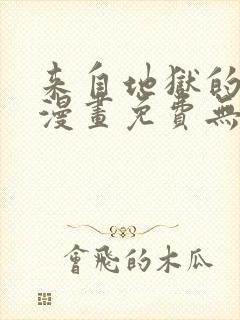 来自地獄的
漫畫免費無
會飛的木瓜